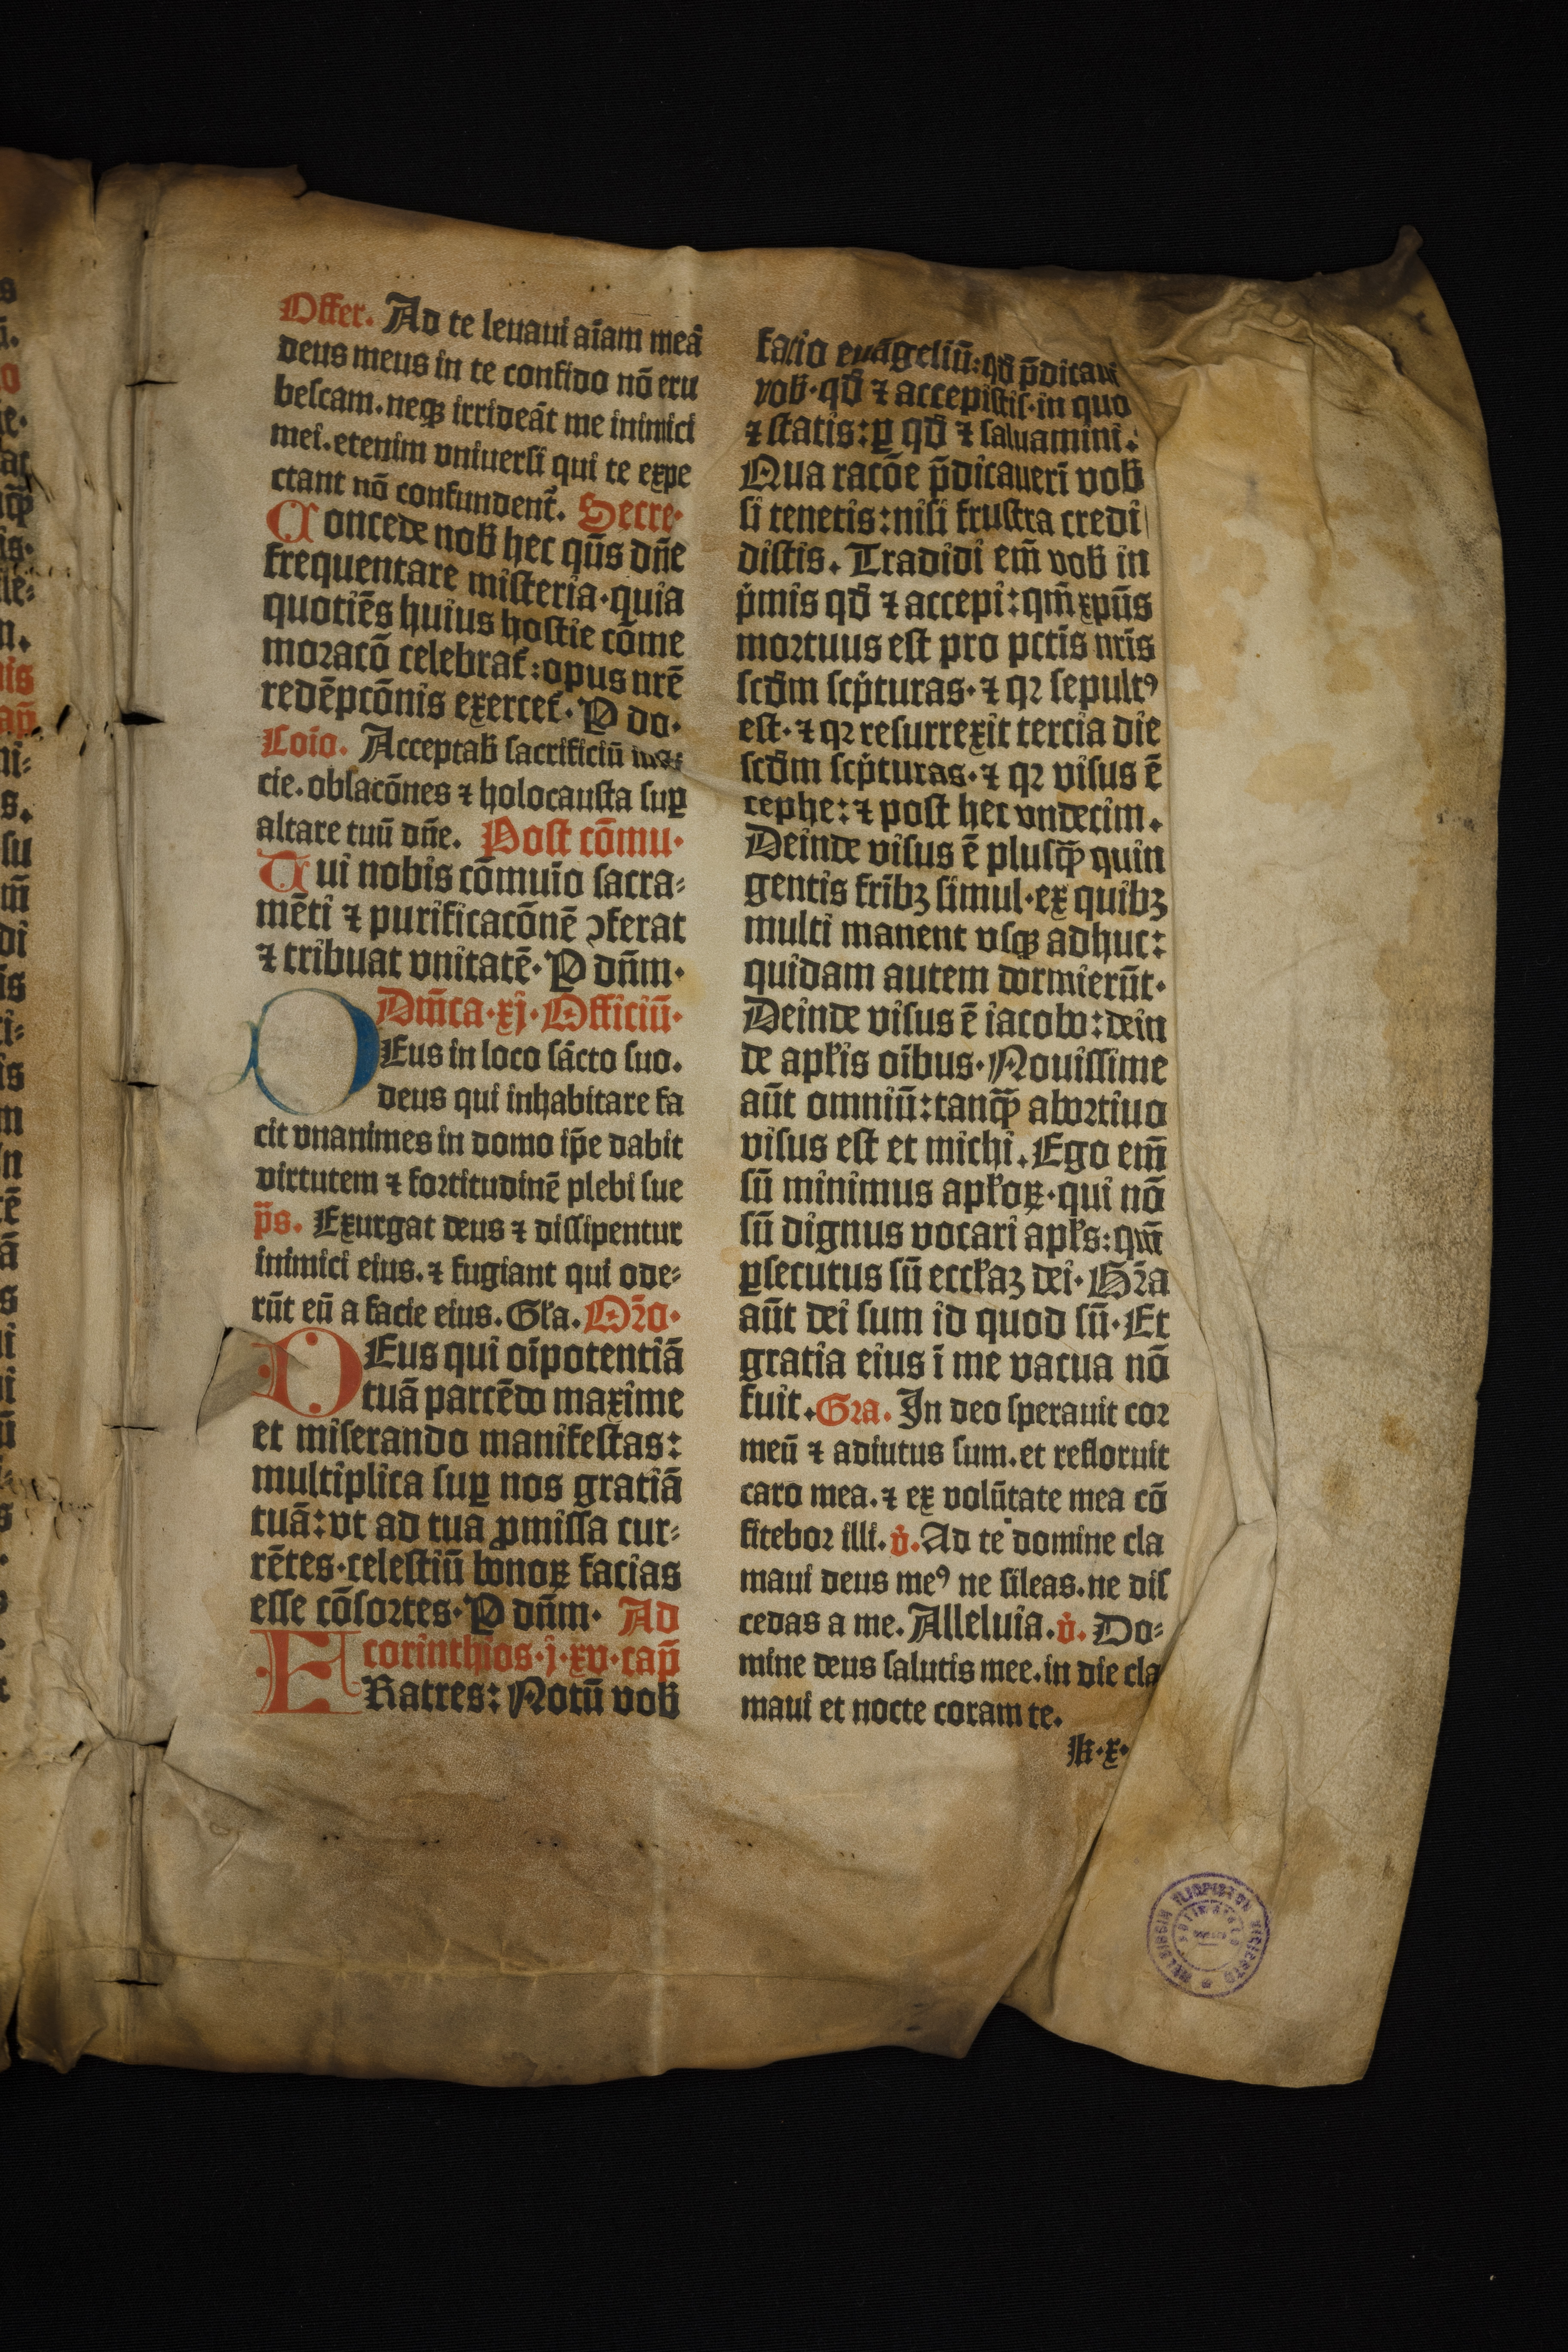 Offer. Ad te leuaui aīam meā
deus meus in te confido nō eru
bescam. neqꝫ irrideāt me inimici
mei. etenim vniuersi qui te expe
ctant nō confundent᷑. Secre·
Concede nob̄ hec qūs dn̄e
frequentare misteria·quia
quotiēs huius hostie cōme
moracō celebrat᷑:opus nr̄e
redēpcōnis exercet᷑·P do·
Cōio. Acceptab̄ sacrificiū
cie. oblacōnes ⁊ holocausta suꝑ
altare tuū dn̄e. Post cōmu·
Tui nobis cōmuīo sacra⸗
mēti ⁊ purificacōnē ↄferat
⁊ tribuat vnitatē·P dn̄m·
Dm̄ca·xj·Officiū·
DEus in loco sācto suo.
deus qui inhabitare fa
cit vnanimes in domo ip̄e dabit
virtutem ⁊ fortitudinē plebi sue
p̄s. Exurgat deus ⁊ dissipentur
inimici eius. ⁊ fugiant qui ode⸗
rūt eū a facie eius. Gł̄a. Or̄o·
DEus qui oīpotentiā
tuā parcēdo maxime
et miserando manifestas:
multiplica suꝑ nos gratiā
tuā:vt ad tua ꝓmissa cur⸗
rētes·celestiū bonoꝝ facias
esse cōsortes·P dn̄m· Ad
corinthios·j·xv·cap̄
FRatres: Notū vob̄
facio euāgeliū:qd̄ p̄dicaui
vob̄·qd̄ ⁊ accepistis·in quo
⁊ statis:ꝑ qd̄ ⁊ saluamini:
Qua racōe p̄dicauerī vob̄
si tenetis:nisi frustra credi
distis. Tradidi em̄ vob̄ in
pͥmis qd̄ ⁊ accepi:qm̄ xpūs
mortuus est pro pctīs nrīs
scd̄m scpͥturas·⁊ qꝛ sepultꝰ
est·⁊ qꝛ resurrexit tercia die
scd̄m scpͥturas·⁊ qꝛ visus ē
cephe:⁊ post hec vndecim.
Deinde visus ē plusqꝫ̄ quin
gentis frībꝫ simul·ex quibꝫ
multi manent vsqꝫ adhuc:
quidam autem dormierūt·
Deinde visus ē iacobo:dein
de apłis oībus·Nouissime
aūt omniū:tanqꝫ̄ abortiuo
visus est et michi. Ego em̄
sū minimus apłoꝝ·qui nō
sū dignus vocari apłs:qm̄
ꝑsecutus sū eccłaꝫ dei·Gr̄a
aūt dei sum id quod sū·Et
gratia eius ī me vacua nō
fuit. Gra. In deo sperauit cor
meū ⁊ adiutus sum. et refloruit
caro mea. ⁊ ex volūtate mea cō
fitebor illi. v̇. Ad te domine cla
maui deus meꝰ ne sileas. ne dis
cedas a me. Alleluia. v̇. Do⸗
mine deus salutis mee. in die cla
maui et nocte coram te.
k·x·